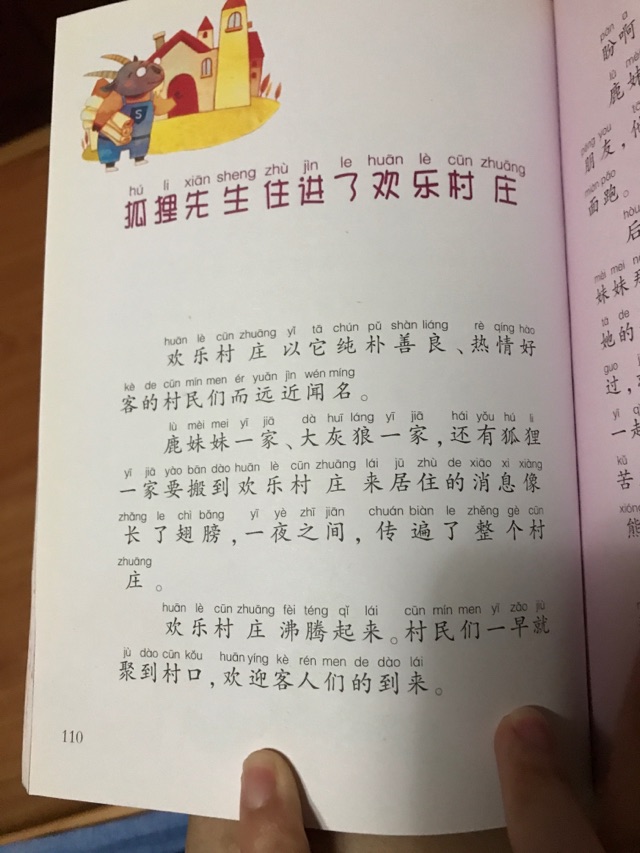 S
hú li xiān sheng zhù jìn le huān lè cūn zhuāng
狐狸先生住进了欢乐村庄
huān lè cūn zhuāng yǐ tā chún pǔ shàn liáng rè qíng hào
欢乐村庄以它纯朴善良、热情好
kè de cūn mín men ér yuǎn jìn wén míng
客的村民们而远近闻名。
lù mèi mei yī jiā dà huī láng yī jiā hái yǒu hú li
鹿妹妹一家、大灰狼一家,还有狐狸
yī jiā yào bān dào huān lè cūn zhuāng lái jū zhù de xiāo xi xiàng
一家要搬到欢乐村庄来居住的消息像
zhǎng le chì bǎng yī yè zhī jiān chuán biàn le zhěng gè cūn
长了翅膀,一夜之间,传遍了整个村
zhuāng
庄。
huān lè cūn zhuāng fèi téng qǐ lái cūn mín men yī zǎo jiù
欢乐村庄沸腾起来。村民们一早就
jù dào cūn kǒu huān yíng kè rén men de dào lái
聚到村口,欢迎客人们的到来。
110
pàn a
盼啊
lù mèi
鹿妹
péng you
朋友,
miàn pǎo
面跑。
hòu
后
mèi mei
妹妹
tā de
她的
guò
过,
yī qǐ
一起
kǔ
苦
xióng
熊